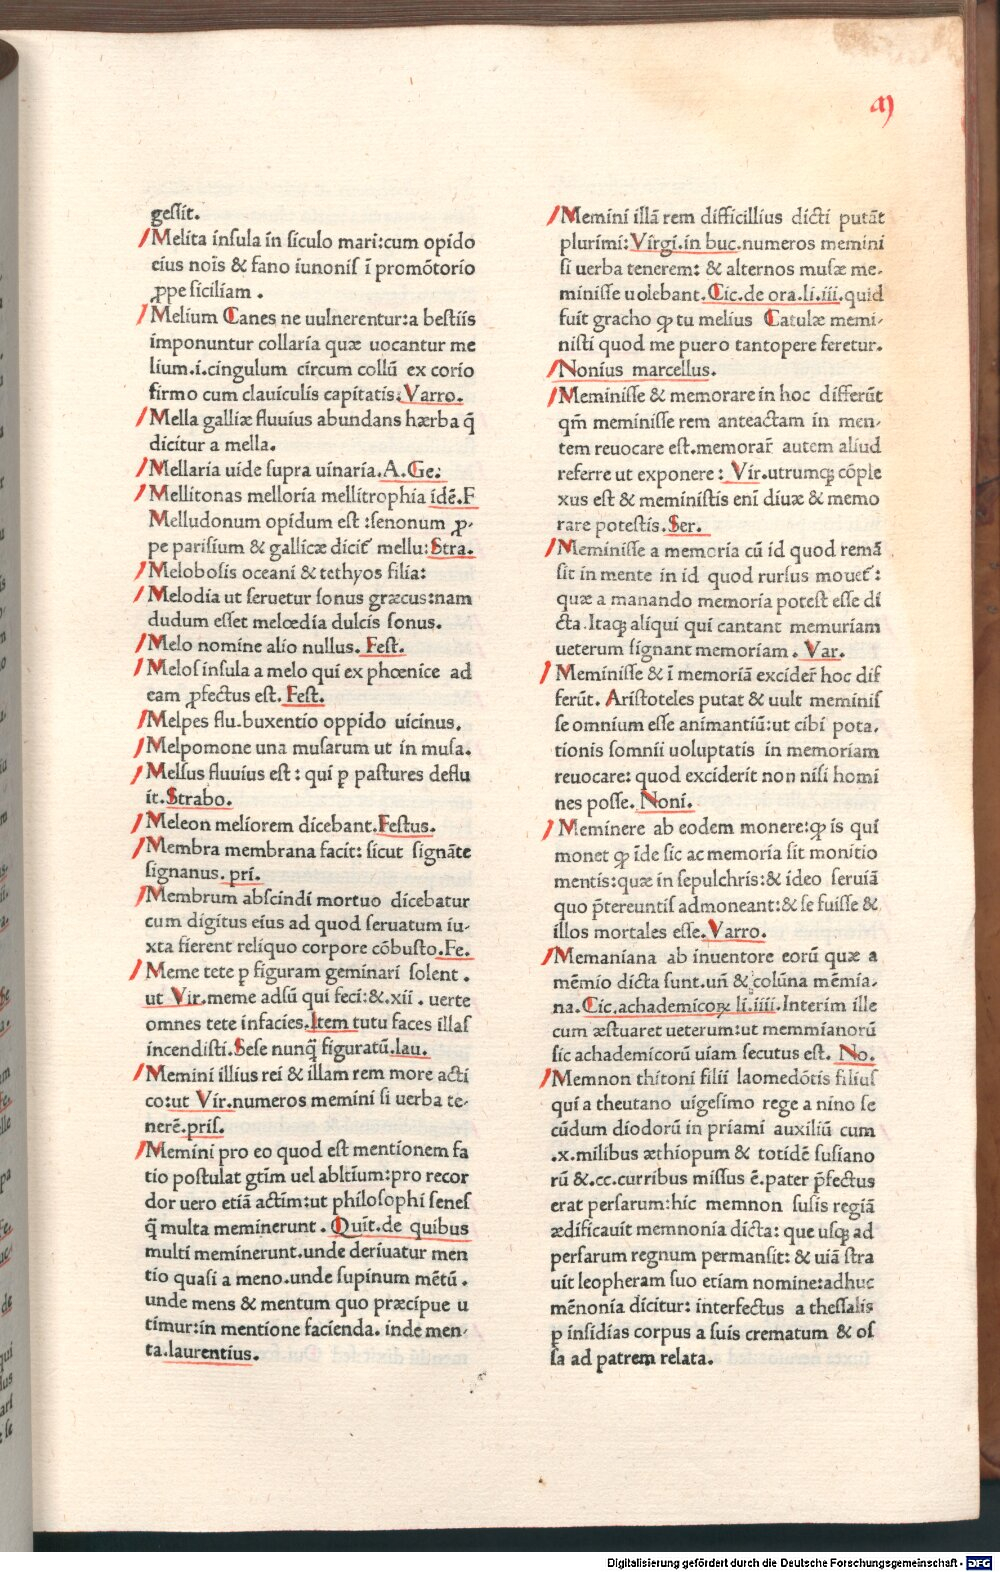 ɱ
geſſit.
Melita inſula in ſiculo mari:cum opido
eius noīs & fano iunoniſ ī promōtorio
ꝓpe ſiciliam .
Melium Canes ne uulnerentur:a beſtiis
imponuntur collaria quæ uocantur me
lium.i.cingulum circum collū ex corio
firmo cum clauiculis capitatis:Varro.
Mella galliæ fluuius abundans hærba q̄
dicitur a mella.
Mellaria uide ſupra uinaria.A.Ge:
Mellitonas melloria mellitrophia idē.F
Melludonum opidum eſt :ſenonum ꝓ-
pe pariſium & gallicæ dicit᷑ mellu:Stra.
Meloboſis oceani & tethyos filia:
Melodia ut ſeruetur ſonus græcus:nam
dudum eſſet melœdia dulcis ſonus.
Melo nomine alio nullus. Feſt.
Meloſ inſula a melo qui ex phœnice ad
eam ꝓfectus eſt. Feſt.
Melpes flu.buxentio oppido uicinus.
Melpomone una muſarum ut in muſa.
Melſus fluuius eſt : qui ꝑ paſtures deflu
it.Strabo.
Meleon meliorem dicebant.Feſtus.
Membra membrana facit: ſicut ſignāte
ſignanus. pri.
Membrum abſcindi mortuo dicebatur
cum digitus eius ad quod ſeruatum iu-
xta fierent reliquo corpore cōbuſto.Fe.
Meme tete ꝑ figuram geminari ſolent .
ut Vir.meme adſū qui feci:&.xii . uerte
omnes tete infacies.Item tutu faces illaſ
incendiſti.Seſe nunq̄ figuratū.lau.
Memini illius rei & illam rem more acti
co:ut Vir.numeros memini ſi uerba te-
nerē.priſ.
Memini pro eo quod eſt mentionem fa
tio poſtulat gtīm uel abltīum:pro recor
dor uero etiā actīm:ut philoſophi ſeneſ
q̄ multa meminerunt . Quīt.de quibus
multi meminerunt.unde deriuatur men
tio quaſi a meno.unde ſupinum mētū .
unde mens & mentum quo præcipue u
timur:in mentione facienda. inde men-
ta.laurentius.
Memini illā rem difficillius dicti putāt
plurimi:Virgi.in buc.numeros memini
ſi uerba tenerem: & alternos muſæ me-
miniſſe uolebant.Cic.de ora.li.iii.quid
fuit gracho ꝙ tu melius Catulæ memi-
niſti quod me puero tantopere feretur.
Nonius marcellus.
Meminiſſe & memorare in hoc differūt
qm̄ meminiſſe rem anteactam in men-
tem reuocare eſt.memorar᷑ autem aliud
referre ut exponere : Vir.utrumq; cōple
xus eſt & meminiſtis eni diuæ & memo
rare poteſtis.Ser.
Meminiſſe a memoria cū id quod remā
ſit in mente in id quod rurſus mouet᷑ :
quæ a manando memoria poteſt eſſe di
cta.Itaq; aliqui qui cantant memuriam
ueterum ſignant memoriam . Var.
Meminiſſe & ī memoriā excider᷑ hoc dif
ferūt. Ariſtoteles putat & uult meminiſ
ſe omnium eſſe animantiū:ut cibi pota-
tionis ſomnii uoluptatis in memoriam
reuocare: quod exciderit non niſi homi
nes poſſe. Noni.
Meminere ab eodem monere:ꝙ is qui
monet ꝙ īde ſic ac memoria ſit monitio
mentis:quæ in ſepulchris:& ideo ſeruiā
quo p̄tereuntiſ admoneant:& ſe fuiſſe &
illos mortales eſſe.Varro.
Memaniana ab inuentore eorū quæ a
mēmio dicta ſunt.un̄ & colūna mēmia-
na. Cic.achademicoꝝ li.iiii.Interim ille
cum æſtuaret ueterum:ut memmianorū
ſic achademicorū uiam ſecutus eſt. No.
Memnon thitoni filii laomedōtis filiuſ
qui a theutano uigeſimo rege a nino ſe
cūdum diodorū in priami auxiliū cum
.x.milibus æthiopum & totidē ſuſiano
rū &.cc.curribus miſſus ē.pater p̄fectus
erat perſarum:hic memnon ſuſis regiā
ædificauit memnonia dicta: que uſq; ad
perſarum regnum permanſit: & uiā ſtra
uit leopheram ſuo etiam nomine:adhuc
mēnonia dicitur: interfectus a theſſalis
ꝑ inſidias corpus a ſuis crematum & oſ
ſa ad patrem relata.
Digitalisierung gefördert durch die Deutsche Forschungsgemeinschaft - DFG